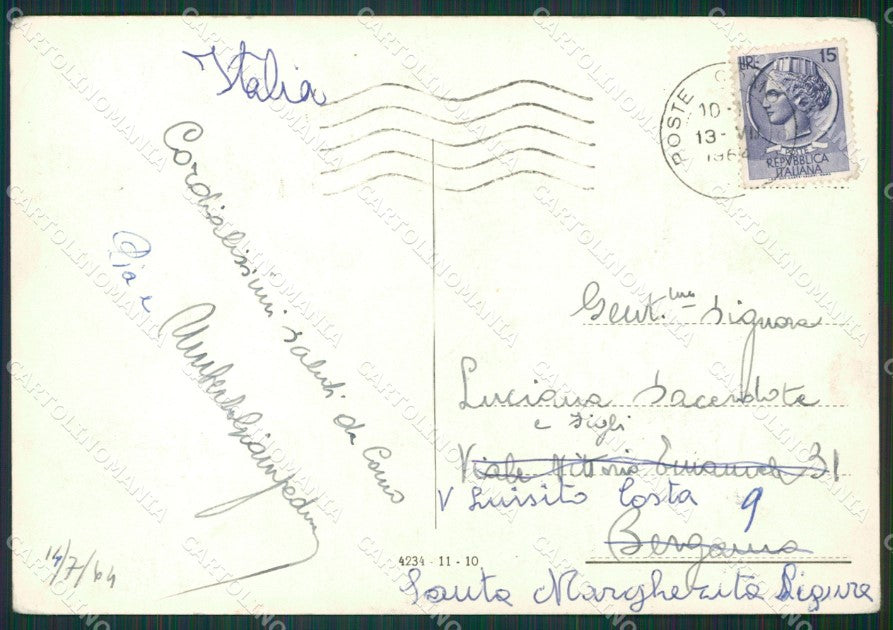 Italia
LIRE 15
POSTE
10-
13- VII
1964
POSTE
REPVBBLICA
ITALIANA
Cordialissimi saluti da Como
Pia e
14/7/64
Gent.ma Signora
Luciana Sacerdote
e figli
Viale Vittorio Emanuele 31
V Luisito Costa 9
Bergamo
Santa Margherita Ligure
4234 - 11 - 10
CARTOLINOMANIA